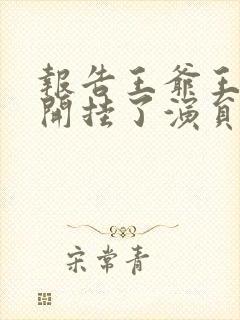 報告王爺王
開挂了演員
宋常青